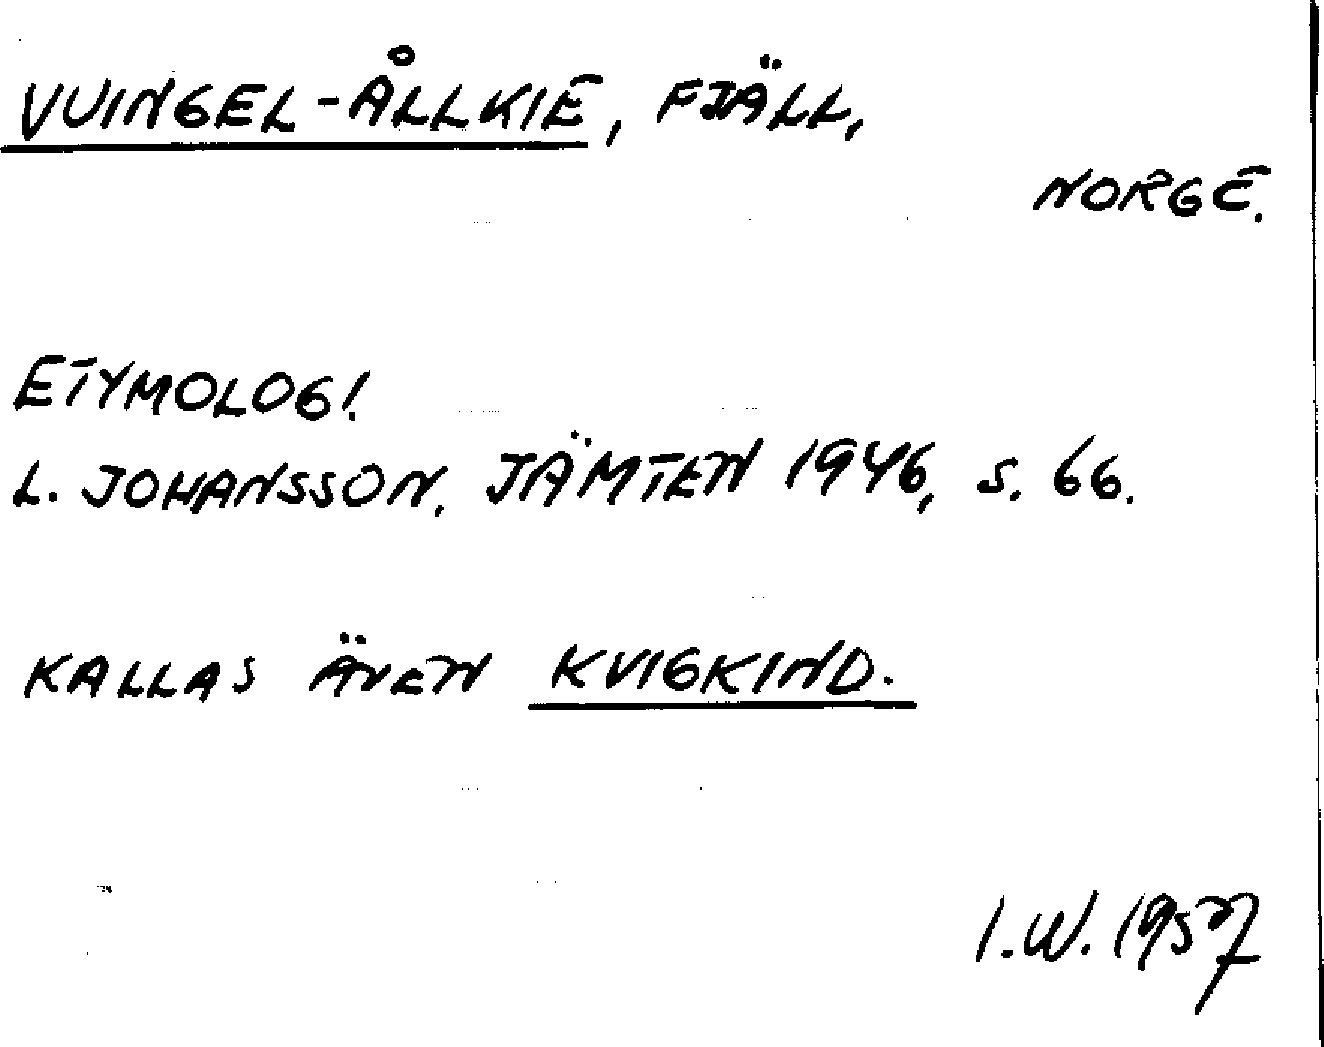 VUINGEL-ÅLLKIE, FJÄLL,
NORGE.
ETYMOLOGI.
L. JOHANSSON, JÄMTEN 1946, S. 66.
KALLAS ÄVEN KVIGKIND.
I.W. 1957